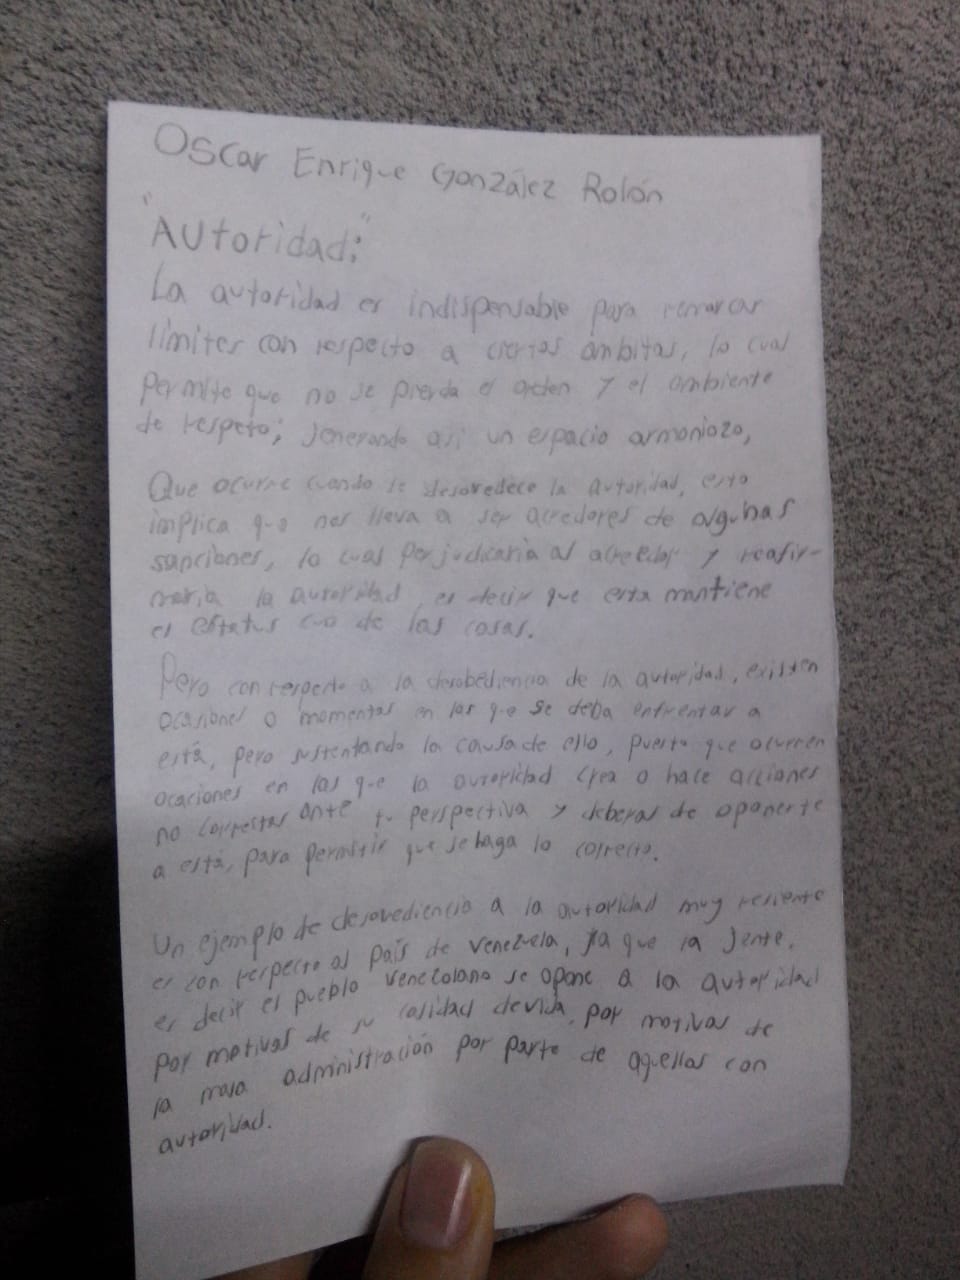 Oscar Enrique González Rolón
"Autoridad:"
La autoridad es indispensable para remarcar
limites con respecto a ciertos ambitos, lo cual
permite que no se pierda el orden y el ambiente
de respeto; jenerando asi un espacio armoniozo,
Que ocurre cuando se desovedece la autoridad, esto
implica que nos lleva a ser acredores de algunas
sanciones, lo cual perjudicaria al acreedor y reafir-
maria la autoridad, es decir que esta mantiene
el estatus cuo de las cosas.
Pero con respecto a la desobediencia de la autoridad, existen
ocasiones o momentos en las que se deba enfrentar a
está, pero sustentando la causa de ello, puesto que ocurren
ocaciones en las que la autoridad crea o hace acciones
no correctas ante tu perspectiva y deberas de oponerte
a está, para permitir que se haga lo correcto.
Un ejemplo de desovediencia a la autoridad muy resiente
es con respecto al país de Venezuela, ya que la jente,
es decir el pueblo venezolano se opone a la autoridad
por motivos de su calidad de vida, por motivos de
la mala administración por parte de aquellos con
autoridad.